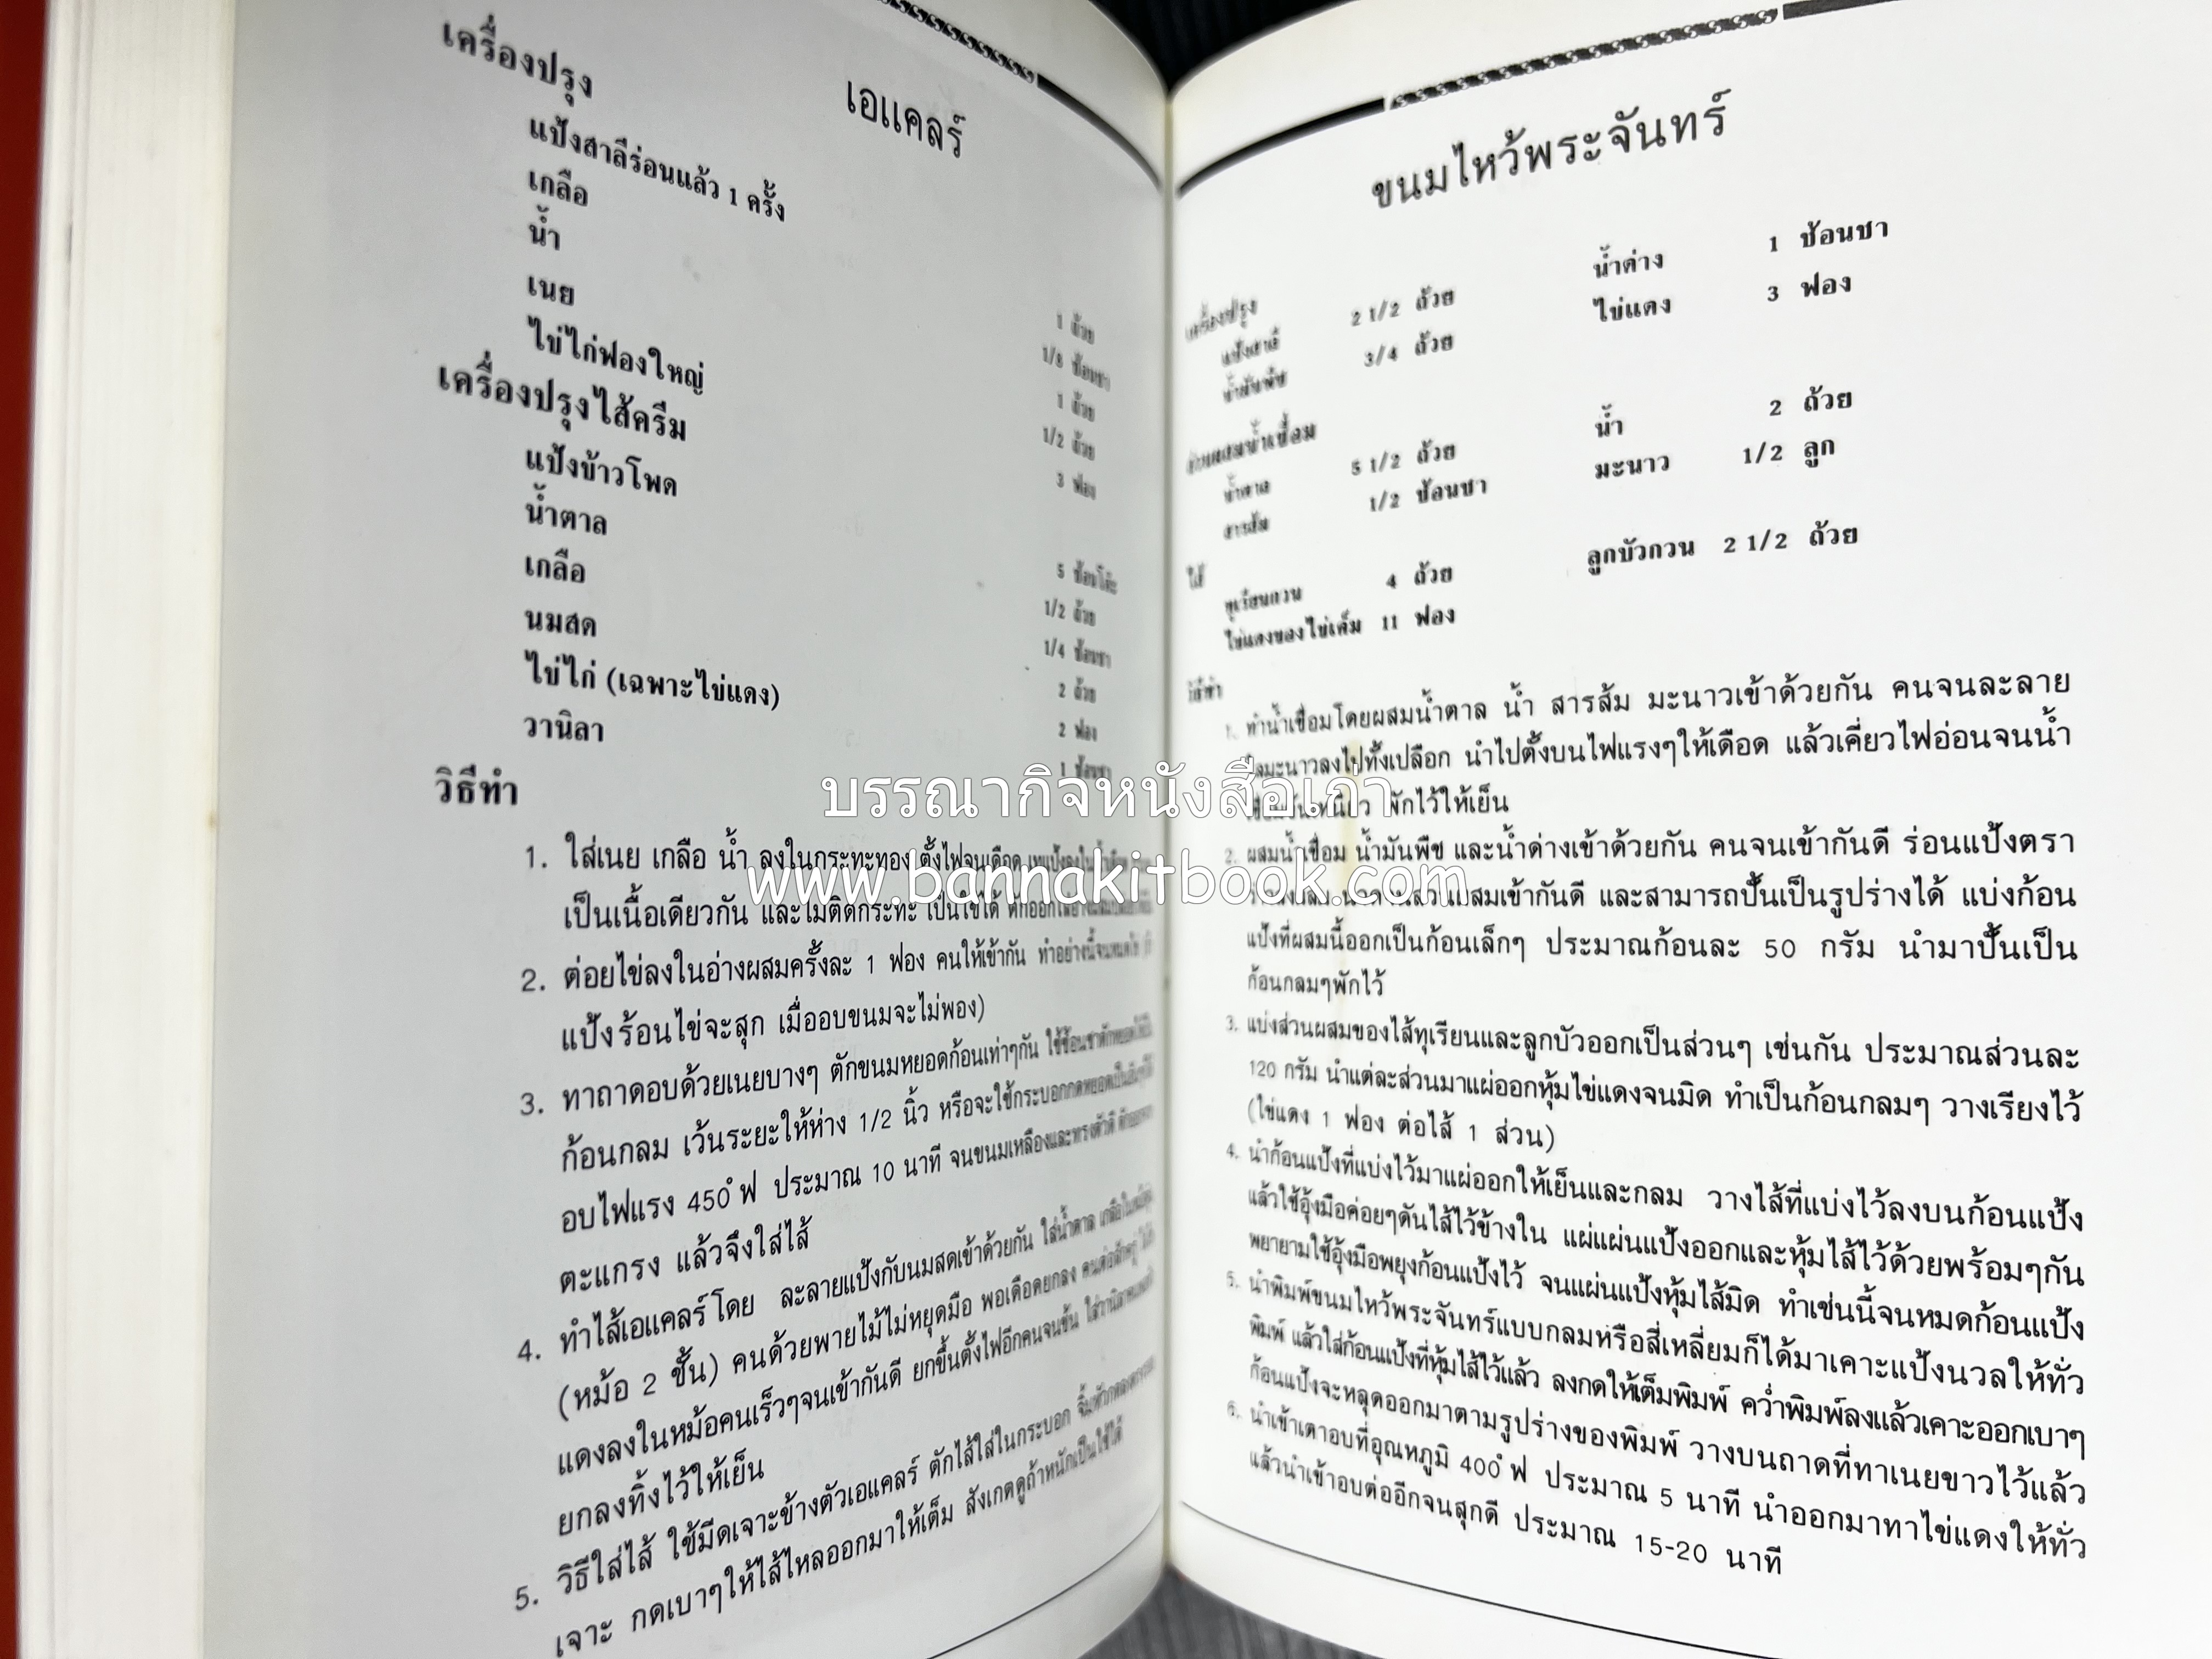 เอแคลร์
เครื่องปรุง
แป้งสาลีร่อนแล้ว 1 ครั้ง 1 ถ้วย
เกลือ 1/8 ช้อนชา
น้ำ 1 ถ้วย
เนย 1/2 ถ้วย
ไข่ไก่ฟองใหญ่ 3 ฟอง
เครื่องปรุงไส้ครีม
แป้งข้าวโพด 5 ช้อนโต๊ะ
น้ำตาล 1/2 ถ้วย
เกลือ 1/4 ช้อนชา
นมสด 2 ถ้วย
ไข่ไก่ (เฉพาะไข่แดง) 2 ฟอง
วานิลา 1 ช้อนชา
วิธีทำ
1. ใส่เนย เกลือ น้ำ ลงในกระทะทอง ตั้งไฟจนเดือด เทแป้งลงใน
เป็นเนื้อเดียวกัน และไม่ติดกระทะ เป็นใช้ได้
2. ต่อยไข่ลงในอ่างผสมครั้งละ 1 ฟอง คนให้เข้ากัน ทำอย่างนี้จนหมดไข่
แป้งร้อนไข่จะสุก เมื่ออบขนมจะไม่พอง)
3. ทาถาดอบด้วยเนยบางๆ ตักขนมหยอดก้อนเท่าๆกัน ใช้ช้อนชาตักหยอดให้เป็น
ก้อนกลม เว้นระยะให้ห่าง 1/2 นิ้ว หรือจะใช้กระบอกกดหยอดเป็น
อบไฟแรง 450 ํฟ ประมาณ 10 นาที จนขนมเหลืองและทรงตัวดี
ตะแกรง แล้วจึงใส่ไส้
4. ทำไส้เอแคลร์โดย ละลายแป้งกับนมสดเข้าด้วยกัน ใส่น้ำตาล เกลือ
(หม้อ 2 ชั้น) คนด้วยพายไม้ไม่หยุดมือ พอเดือดยกลง คนต่อสักครู่
แดงลงในหม้อคนเร็วๆจนเข้ากันดี ยกขึ้นตั้งไฟอีกคนจนข้น ใส่วานิลา
ยกลงทิ้งไว้ให้เย็น
5. วิธีใส่ไส้ ใช้มีดเจาะข้างตัวเอแคลร์ ตักไส้ใส่ในกระบอก
เจาะ กดเบาๆให้ไส้ไหลออกมาให้เต็ม สังเกตดูถ้าหนักเป็นใช้ได้
ขนมไหว้พระจันทร์
เครื่องปรุง
แป้งสาลี 2 1/2 ถ้วย น้ำด่าง 1 ช้อนชา
น้ำมันพืช 3/4 ถ้วย ไข่แดง 3 ฟอง
ส่วนผสมน้ำเชื่อม
น้ำตาล 5 1/2 ถ้วย น้ำ 2 ถ้วย
สารส้ม 1/2 ช้อนชา มะนาว 1/2 ลูก
ไส้
ทุเรียนกวน 4 ถ้วย ลูกบัวกวน 2 1/2 ถ้วย
ไข่แดงของไข่เค็ม 11 ฟอง
วิธีทำ
1. ทำน้ำเชื่อมโดยผสมน้ำตาล น้ำ สารส้ม มะนาวเข้าด้วยกัน คนจนละลาย
มะนาวลงไปทั้งเปลือก นำไปตั้งบนไฟแรงๆให้เดือด แล้วเคี่ยวไฟอ่อนจนน้ำ
พักไว้ให้เย็น
2. ผสมน้ำเชื่อม น้ำมันพืช และน้ำด่างเข้าด้วยกัน คนจนเข้ากันดี ร่อนแป้งตรา
เข้ากันดี และสามารถปั้นเป็นรูปร่างได้ แบ่งก้อน
แป้งที่ผสมนี้ออกเป็นก้อนเล็กๆ ประมาณก้อนละ 50 กรัม นำมาปั้นเป็น
ก้อนกลมๆพักไว้
3. แบ่งส่วนผสมของไส้ทุเรียนและลูกบัวออกเป็นส่วนๆ เช่นกัน ประมาณส่วนละ
120 กรัม นำแต่ละส่วนมาแผ่ออกหุ้มไข่แดงจนมิด ทำเป็นก้อนกลมๆ วางเรียงไว้
(ไข่แดง 1 ฟอง ต่อไส้ 1 ส่วน)
4. นำก้อนแป้งที่แบ่งไว้มาแผ่ออกให้เย็นและกลม วางไส้ที่แบ่งไว้ลงบนก้อนแป้ง
แล้วใช้อุ้งมือค่อยๆดันไส้ไว้ข้างใน แผ่แผ่นแป้งออกและหุ้มไส้ไว้ด้วยพร้อมๆกัน
พยายามใช้อุ้งมือพยุงก้อนแป้งไว้ จนแผ่นแป้งหุ้มไส้มิด ทำเช่นนี้จนหมดก้อนแป้ง
5. นำพิมพ์ขนมไหว้พระจันทร์แบบกลมหรือสี่เหลี่ยมก็ได้มาเคาะแป้งนวลให้ทั่ว
พิมพ์ แล้วใส่ก้อนแป้งที่หุ้มไส้ไว้แล้ว ลงกดให้เต็มพิมพ์ คว่ำพิมพ์ลงแล้วเคาะออกเบาๆ
ก้อนแป้งจะหลุดออกมาตามรูปร่างของพิมพ์ วางบนถาดที่ทาเนยขาวไว้แล้ว
6. นำเข้าเตาอบที่อุณหภูมิ 400 ํฟ ประมาณ 5 นาที นำออกมาทาไข่แดงให้ทั่ว
แล้วนำเข้าอบต่ออีกจนสุกดี ประมาณ 15-20 นาที
บรรณากิจหนังสือเก่า
www.bannakitbook.com